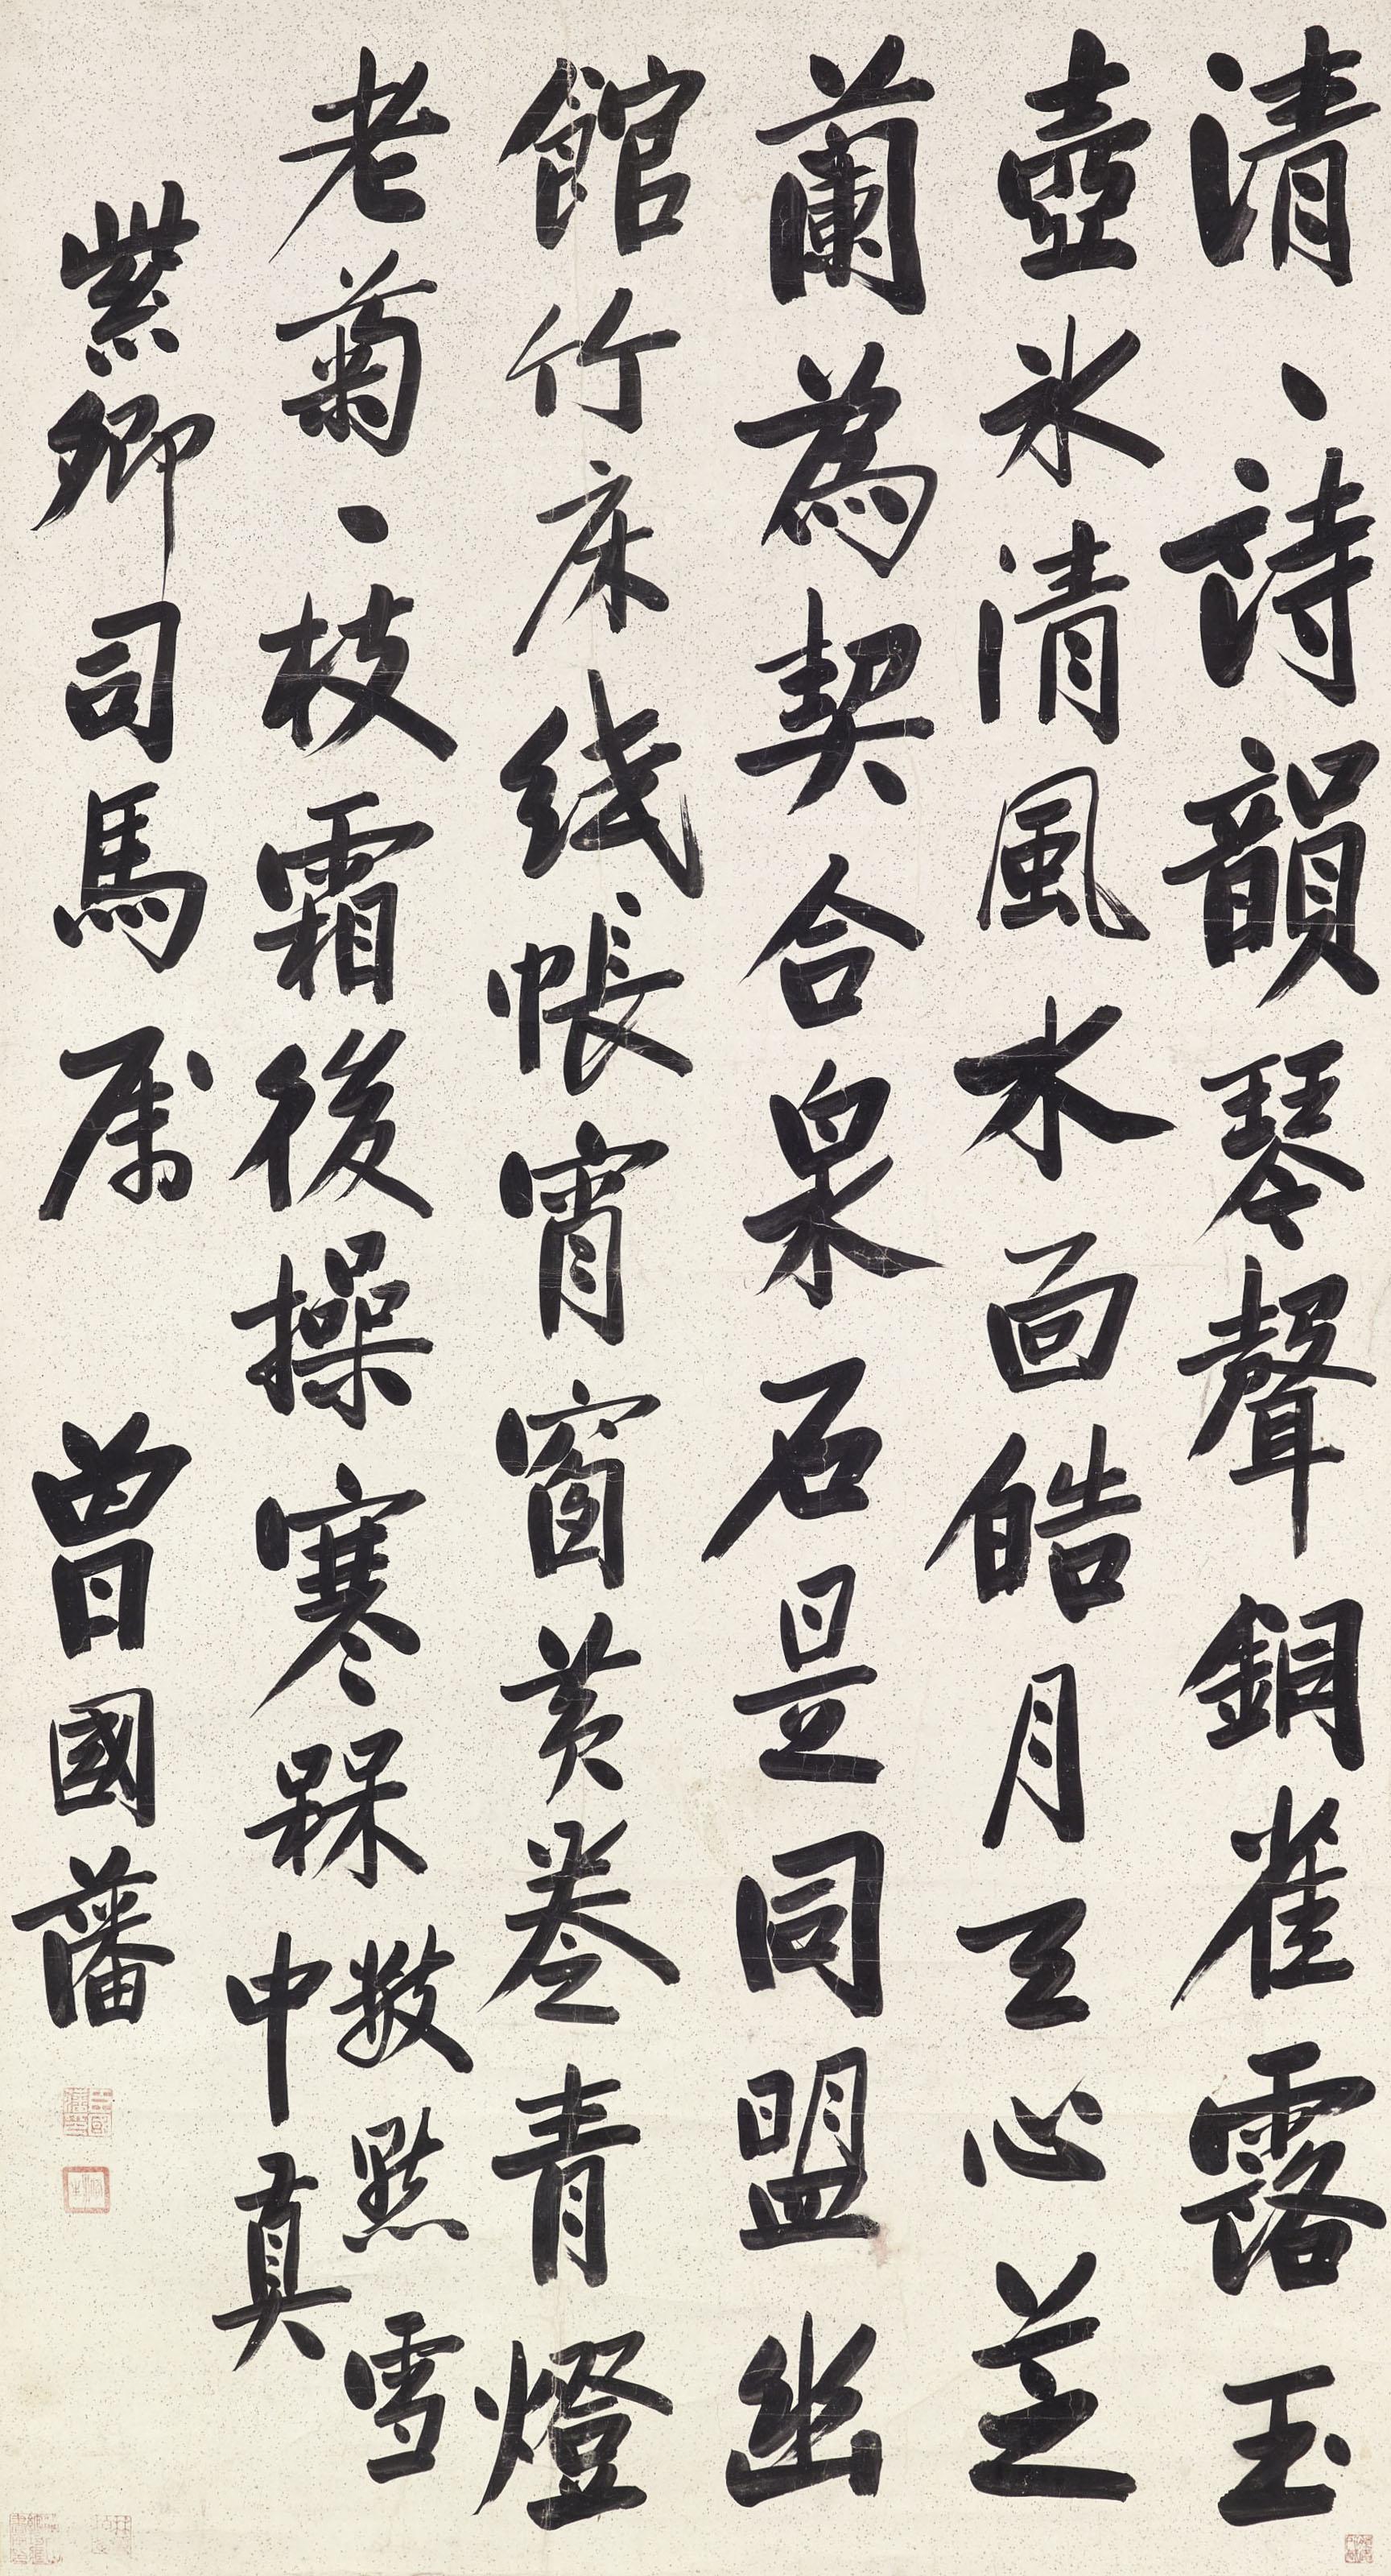 清、詩韻琴聲銅雀露玉
壺氷清風水面皓月天心芝
蘭為契合泉石是同盟幽
館竹床紙帳宵窗黃卷青燈
老菊、枝霜後操寒槑數點雪中真
紫卿司馬属 曾國藩